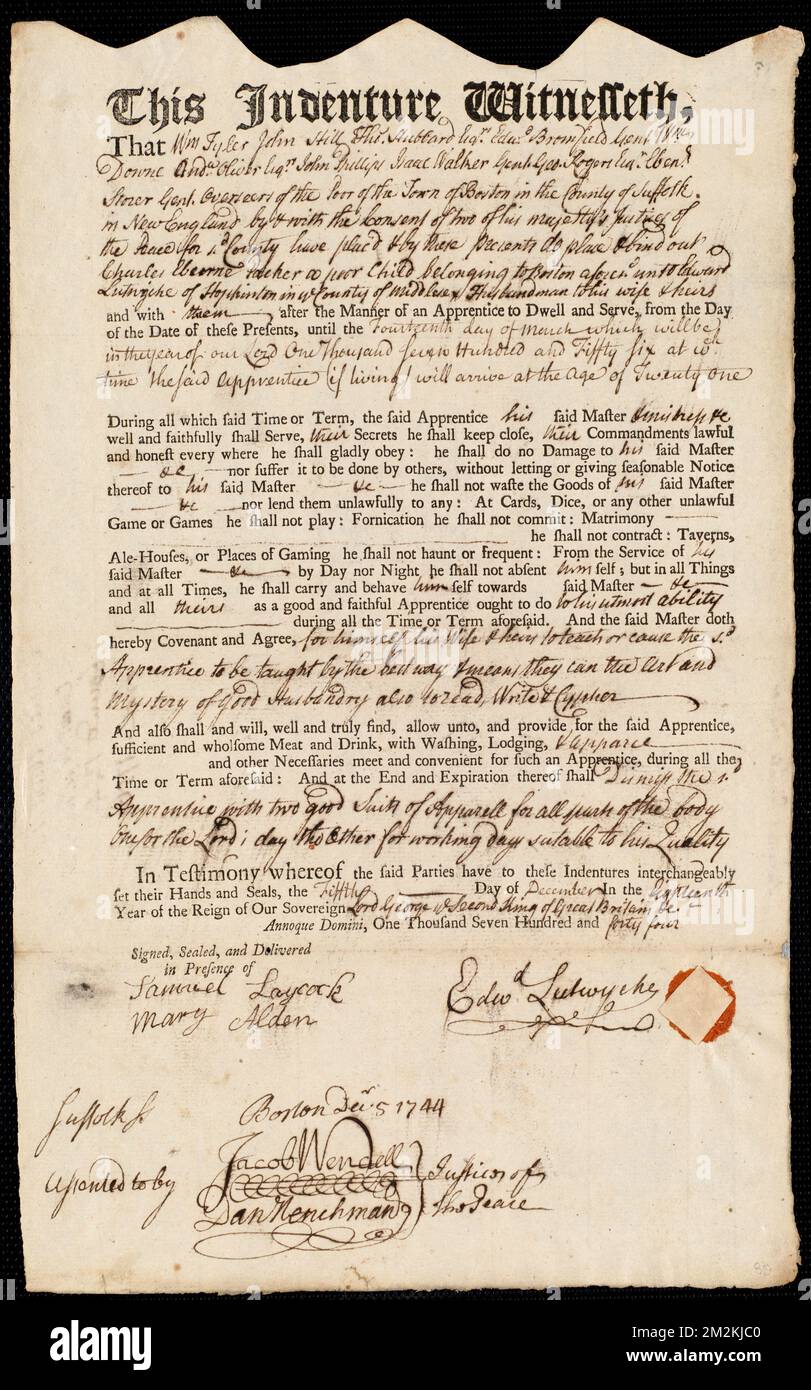 This Indenture Witnesseth,
That Wm Tyler John Hill & Tho.s Hubbard Esq.rs Edw.d Bromfield Gent Wm
Downe And.w Oliver Esq.r John Phillips Isaac Walker Gent Geo. Rogers Esq.r Eben.r
Storer Gent. Overseers of the Poor of the Town of Boston in the County of Suffolk
in New England by & with the Consent of two of his majesty's Justices of
the Peace for s.d County have plac'd & by these Presents do place & bind out
Charles a poor Child belonging to Boston afores.d unto Edward
Lutwyche of Hopkinton in y.e County of Middlesex Husbandman to his wife & heirs
and with them after the Manner of an Apprentice to Dwell and Serve, from the Day
of the Date of these Presents, until the Fourteenth day of March which will be
in the year of our Lord One Thousand Seven Hundred and Fifty Six at w.ch
time the said apprentice (if living) will arrive at the age of Twenty one
During all which said Time or Term, the said Apprentice his said Master & mistress &c
well and faithfully shall Serve, their Secrets he shall keep close, their Commandments lawful
and honest every where he shall gladly obey: he shall do no Damage to his said Master
— &c — nor suffer it to be done by others, without letting or giving seasonable Notice
thereof to his said Master — &c — he shall not waste the Goods of his said Master
— &c — nor lend them unlawfully to any: At Cards, Dice, or any other unlawful
Game or Games he shall not play: Fornication he shall not commit: Matrimony —
— he shall not contract: Taverns,
Ale-Houses, or Places of Gaming he shall not haunt or frequent: From the Service of his
said Master — &c — by Day nor Night he shall not absent him self; but in all Things
and at all Times, he shall carry and behave him self towards said Master — &c —
and all theirs as a good and faithful Apprentice ought to do to his utmost ability
— during all the Time or Term aforesaid. And the said Master doth
hereby Covenant and Agree, for himself his Wife & heirs to teach or cause the s.d
Apprentice to be taught by the best way & means they can the Art and
Mystery of Good Husbandry also to read, Write & Cypher
And also shall and will, well and truly find, allow unto, and provide for the said Apprentice,
sufficient and wholsome Meat and Drink, with Washing, Lodging, & apparell
and other Necessaries meet and convenient for such an Apprentice, during all the
Time or Term aforesaid: And at the End and Expiration thereof shall Dismiss the s.d
Apprentice with two good Suits of Apparell for all parts of the body
One for the Lord's day the Other for working days suitable to his Quality
In Testimony whereof the said Parties have to these Indentures interchangeably
set their Hands and Seals, the Fifth Day of December In the Eighteenth
Year of the Reign of Our Sovereign Lord George y.e Second King of Great Britain &c
Annoque Domini, One Thousand Seven Hundred and forty four
Signed, Sealed, and Delivered
in Presence of
Samuel Laycock
Mary Alden
Edw.d Lutwyche
Suffolk ss. Boston Dec.r 5 1744
Assented to by
Jacob Wendell
Dan Henchman
Justices of
the Peace
alamy
Image ID: 2M2KJC0
www.alamy.com